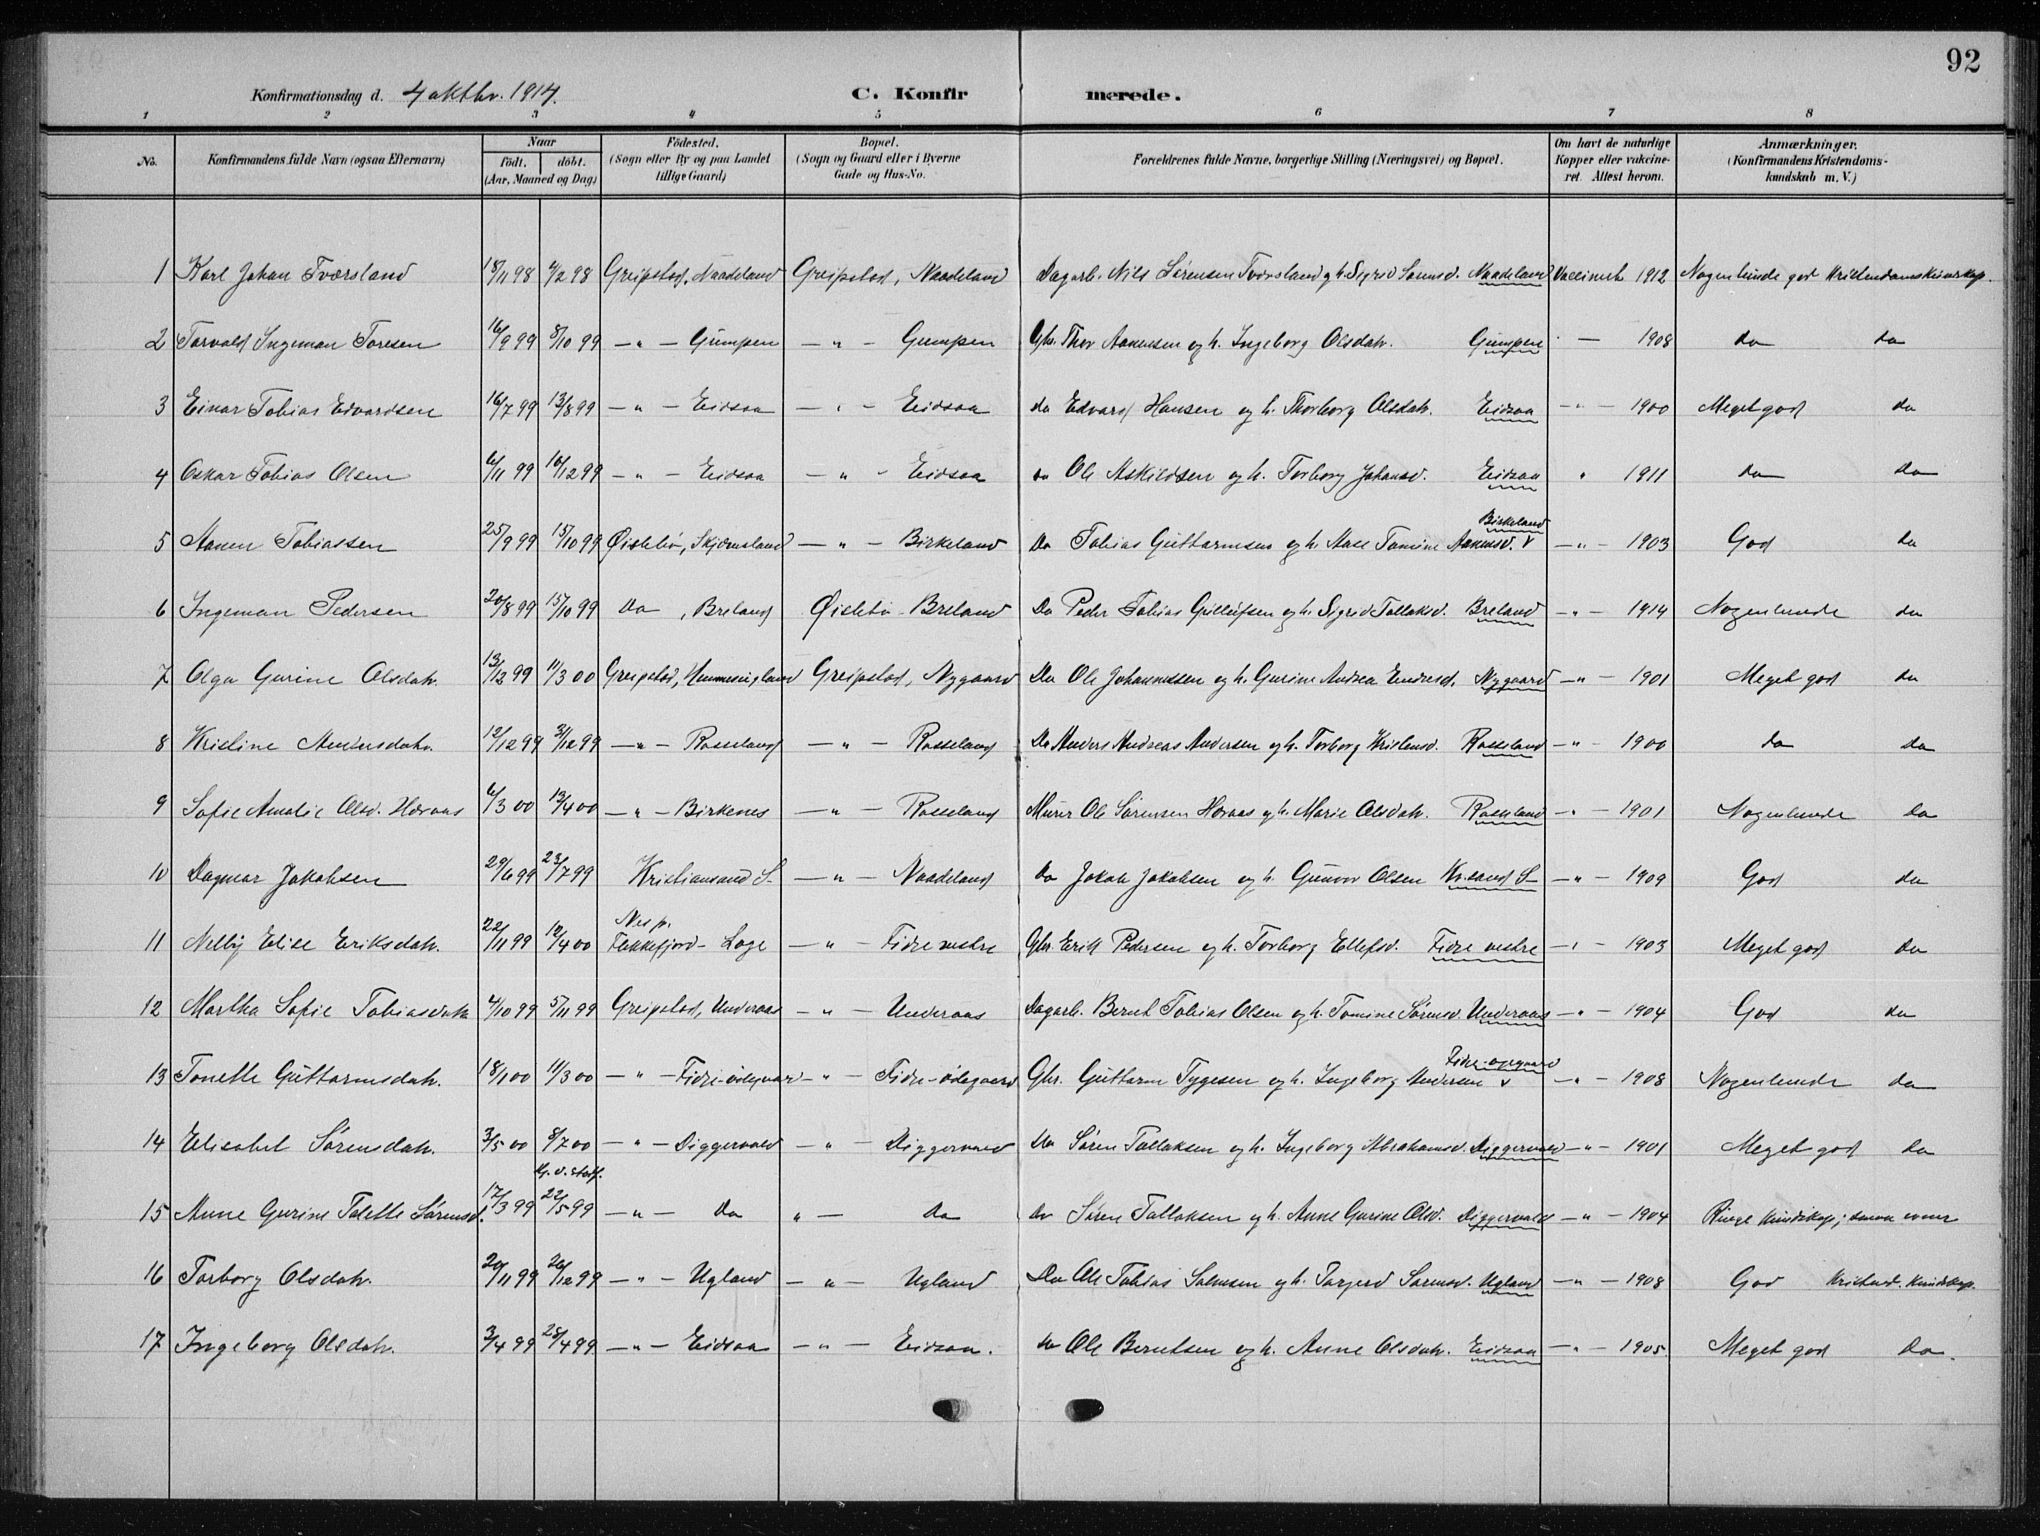 92
Konfirmationsdag d. 4 oktbr. 1914. C. Konfirmerede.
1 2 3 4 5 6 7 8
No. Konfirmandens fulde Navn (ogsaa Efternavn) Naar født. døbt. (Aar, Maaned og Dag) Fødested. (Sogn eller By og paa Landet tillige Gaard) Bopæl. (Sogn og Gaard eller i Byerne Gade og Hus-No. Forældrenes fulde Navne, borgerlige Stilling (Næringsvei) og Bopæl. Om havt de naturlige Kopper eller vakcineret. Attest herom. Anmærkninger. (Konfirmandens Kristendomskundskab m. V.)
1 Karl Johan Tværsland 18/11 98 4/2 98 Greipstad, Naadeland Greipstad, Naadeland Dagarb. Nils Sørensen Tversland og h. Sigrid Sørensd. Naadeland Vaccineret 1912 Nogenlunde god Kristendomskundskap.
2 Torvald Ingeman Toresen 16/9 99 8/10 99 — " — Gumpen — " — Gumpen Gbr. Thor Aanensen og h. Ingeborg Olsdatr. Gumpen — 1908 do do
3 Einar Tobias Edvardsen 16/7 99 13/8 99 — " — Eidsaa — " — Eidsaa do Edvard Hansen og h. Thorborg Olsdatr. Eidsaa — " — 1900 Meget god do
4 Oskar Tobias Olsen 6/11 99 10/12 99 — " — Eidsaa — " — Eidsaa do Ole Askildsen og h. Torborg Johansd. Eidsaa " 1911 do do
5 Aanen Tobiassen 25/9 99 15/10 99 Øislebø, Skjævesland — " — Birkeland Do Tobias Guttormsen og h. Aase Tomine Aanensd. v Birkeland — " — 1903 God do
6 Ingeman Pedersen 20/8 99 15/10 99 Do, Breland Øislebø Breland Do Peder Tobias Gullufsen og h. Sigrid Tallaksd. Breland — " — 1914 Nogenlunde do
7 Olga Gurine Olsdatr. 13/12 99 11/3 00 Greipstad, Hemmesigland Greipstad, Nygaard Do Ole Johannessen og h. Gurine Andrea Endresd. Nygaard — " — 1901 Meget god do
8 Kristine Andersdatr. 12/12 99 31/12 99 — " — Rosseland — " — Rosseland Do Anders Andreas Andersen og h. Torborg Kristensd. Rosseland — " — 1900 do do
9 Sofie Amalie Olsd. Høraas 6/3 00 13/4 00 — " — Birkenes — " — Rosseland Murer Ole Sørensen Høraas og h. Marie Olsdatr. Rosseland — " — 1901 Nogenlunde do
10 Dagmar Jakobsen 29/6 99 23/7 99 Kristiansand S. — " — Naadeland do Jakob Jakobsen og h. Gunvor Olsen Kr.sand S. — " — 1909 God do
11 Nelly Elise Eriksdatr. 22/11 99 12/4 00 Nes pr. Flekkefjord - Loge — " — Fidre vestre Gbr. Erik Pedersen og h. Torborg Ellefsd. Fidre vestre — " — 1903 Meget god do
12 Martha Sofie Tobiasdatr 4/10 99 5/11 99 Greipstad, Underaas — " — Underaas Dagarb. Bernt Tobias Olsen og h. Tomine Sørensd. Underaas — " — 1904 God do
13 Tonette Guttormsdatr. 18/1 00 11/3 00 — " — Fidre-ødegaard — " — Fidre-ødegaard Gbr. Guttorm Tygesen og h. Ingeborg Andersen v Fidre-øegaard — " — 1908 Nogenlunde do
14 Elisabet Sørensdatr. 3/5 00 8/7 00 — " — Diggervald — " — Diggervald Do Søren Tallaksen og h. Ingeborg Abrahamsd. Diggervald — " — 1901 Meget god do
15 Anne Gurine Talette Sørensd. 17/3 99 22/5 99 — " — Do " — Do do Søren Tallaksen og h. Anne Gurine Olsd. Diggervald — " — 1904 Ringe kundskap; smaa evner
16 Torborg Olsdatr. 20/11 99 26/12 99 — " — Ugland — " — Ugland Do Ole Tobias Salvesen og h. Torjerd Sørensd. Ugland — " — 1908 God Kristend. kundskap.
17 Ingeborg Olsdatr. 3/4 99 28/4 99 — " — Eidsaa — " — Eidsaa. do Ole Berntsen og h. Anne Olsdatr. Eidsaa — " — 1905 Meget god Do.